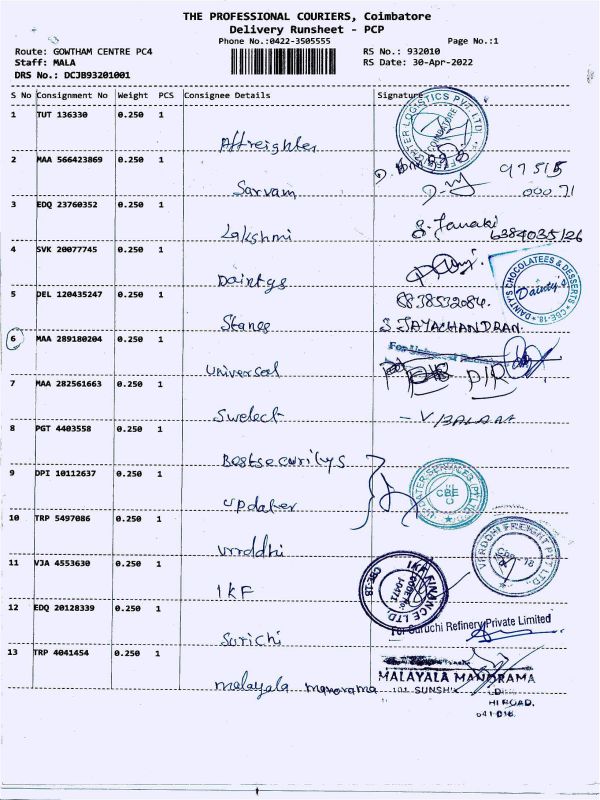 THE PROFESSIONAL COURIERS, Coimbatore
Delivery Runsheet - PCP
Phone No.:0422-3505555 Page No.:1
Route: GOWTHAM CENTRE PC4 RS No.: 932010
Staff: MALA RS Date: 30-Apr-2022
DRS No.: DCJB93201001
S No Consignment No Weight PCS Consignee Details Signature
1 TUT 136330 0.250 1
Affreighter
2 MAA 566423869 0.250 1 97515
Sarvam 00071
3 EDQ 23760352 0.250 1
Lakshmi S. Janaki 6384035126
4 SVK 20077745 0.250 1
Daintys DAINTY'S CHOCOLATEES & DESSERTS CBE-18
5 DEL 120435247 0.250 1 6838532084.
Stanes S. JAYACHANDRAN.
6 MAA 289180204 0.250 1
Universal
7 MAA 282561663 0.250 1
Swelect
8 PGT 4403558 0.250 1
Bestsecuritys
9 DPI 10112637 0.250 1 CBE
updater
10 TRP 5497086 0.250 1
Vrrddhi VRRDDHI FREIGHT PVT LTD
11 VJA 4553630 0.250 1
IKF IKF FINANCE LTD. CBE-18
12 EDQ 20128339 0.250 1
Surichi For Suruchi Refinery Private Limited
13 TRP 4041454 0.250 1
malayala manorama MALAYALA MANORAMA